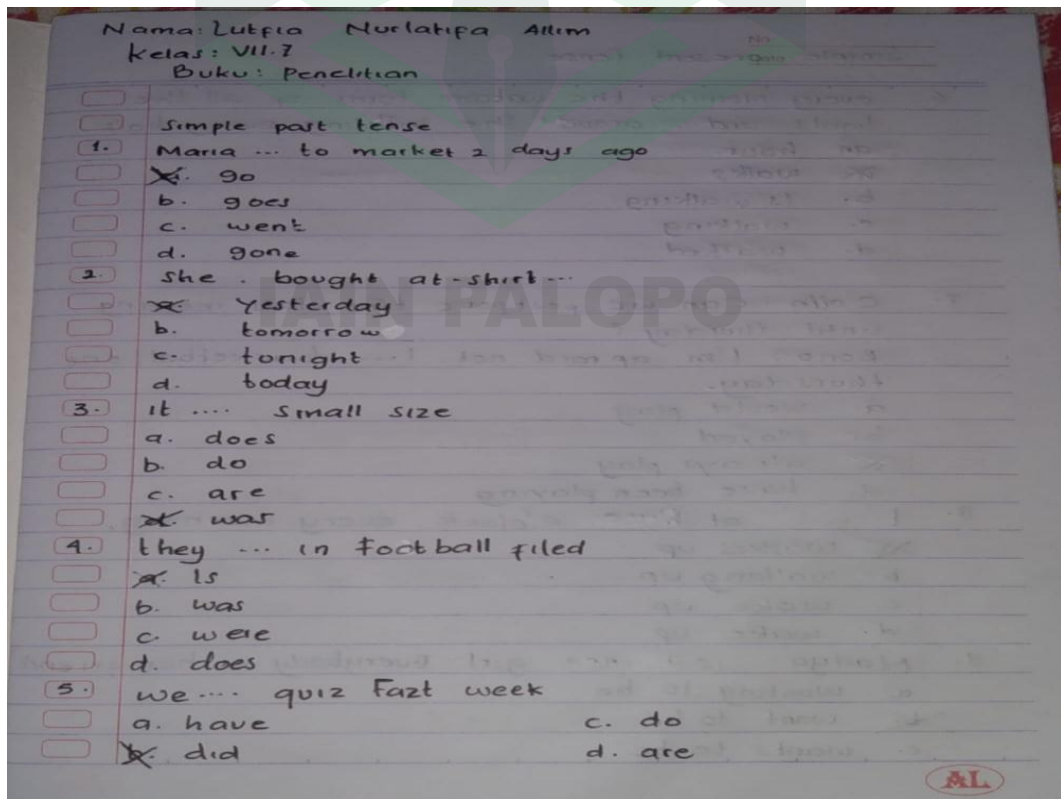 Nama: Lutfia Nurlatifa Allim
Kelas: VII.7
Buku: Penelitian
Simple past tense
1. Maria ... to market 2 days ago
a. go
b. goes
c. went
d. gone
2. She . bought at-shirt ...
a. Yesterday
b. tomorrow
c. tonight
d. today
3. it .... small size
a. does
b. do
c. are
d. was
4. they ... in football filed
a. is
b. was
c. were
d. does
5. we .... quiz Fazt week
a. have c. do
b. did d. are
IAIN PALOPO
AL